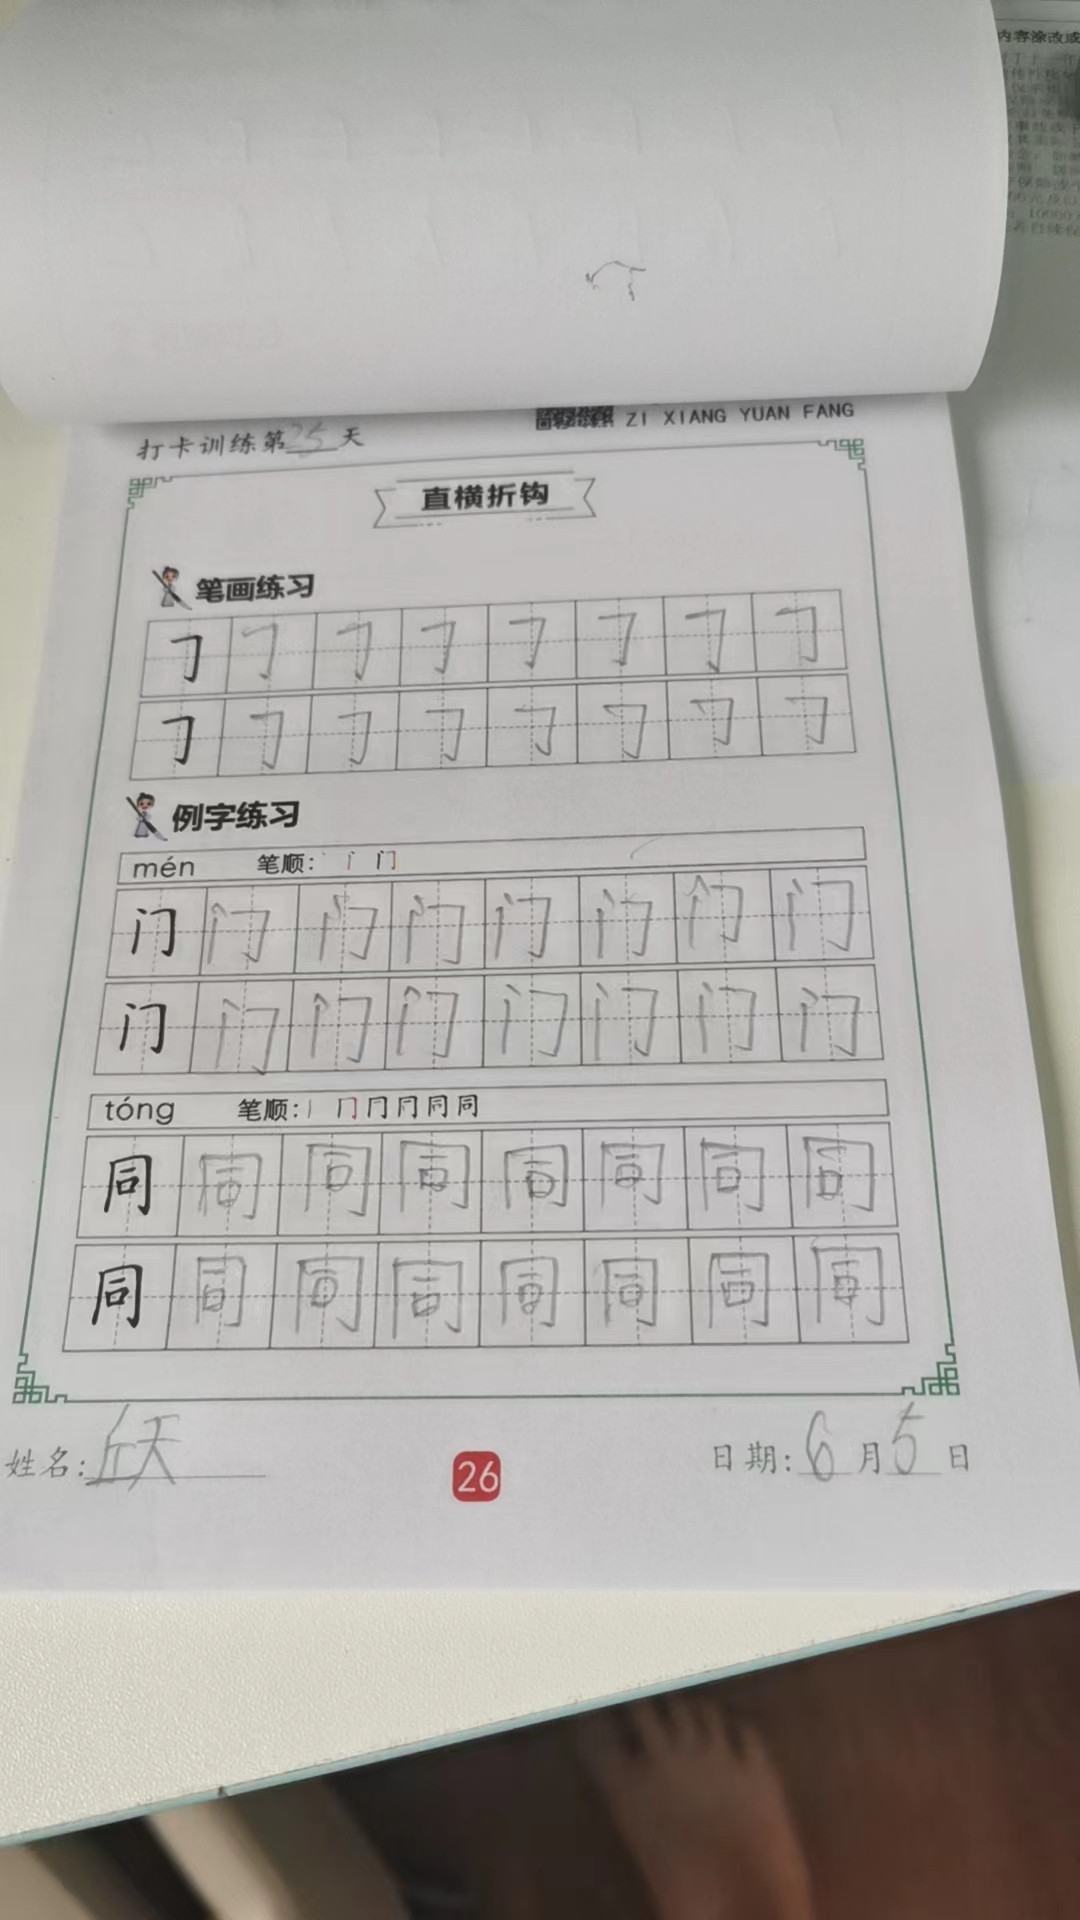 内容涂改或
打卡训练第25天
ZI XIANG YUAN FANG
直横折钩
笔画练习
𠃌 𠃌 𠃌 𠃌 𠃌 𠃌 𠃌 𠃌
𠃌 𠃌 𠃌 𠃌 𠃌 𠃌 𠃌 𠃌
例字练习
mén 笔顺: 丶 门
门 门 门 门 门 门 门 门
门 门 门 门 门 门 门 门
tóng 笔顺: 丨 冂 同 同
同 同 同 同 同 同 同 同
同 同 同 同 同 同 同 同
姓名: 丘天 26 日期: 6月5日